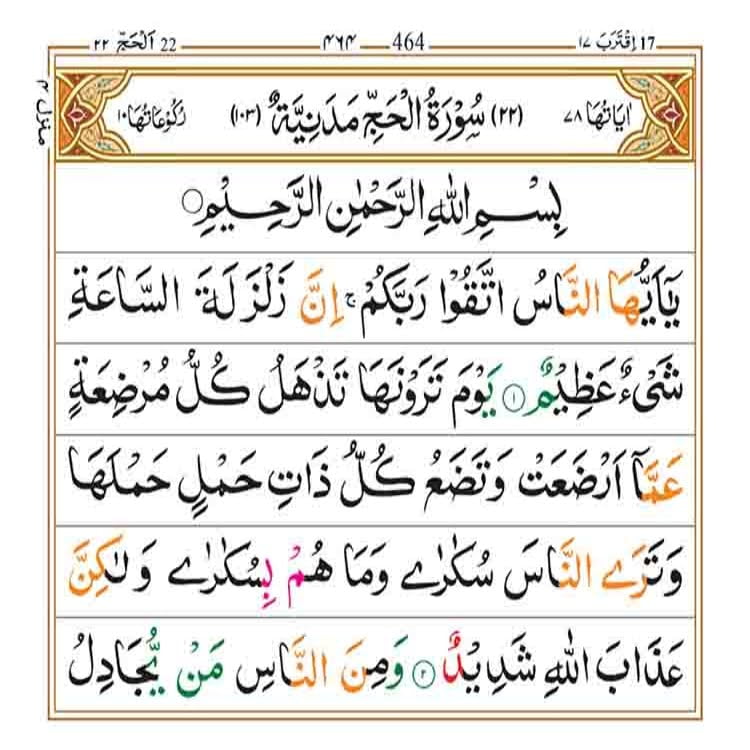 اِقْتَرَبَ ١٧ 17 ۴۶۴ 464 اَلْحَجّ ٢٢ 22
منزل ۴
اٰيَاتُهَا ٧٨ (٢٢) سُوْرَةُ الْحَجِّ مَدَنِيَّةٌ (١٠٣) رُكُوْعَاتُهَا ١٠
بِسْمِ اللّٰهِ الرَّحْمٰنِ الرَّحِيْمِ ○
يٰۤاَيُّهَا النَّاسُ اتَّقُوْا رَبَّكُمْ ۚ اِنَّ زَلْزَلَةَ السَّاعَةِ
شَيْءٌ عَظِيْمٌ ۝١ يَوْمَ تَرَوْنَهَا تَذْهَلُ كُلُّ مُرْضِعَةٍ
عَمَّاۤ اَرْضَعَتْ وَتَضَعُ كُلُّ ذَاتِ حَمْلٍ حَمْلَهَا
وَتَرَى النَّاسَ سُكٰرٰى وَمَا هُمْ بِسُكٰرٰى وَلٰكِنَّ
عَذَابَ اللّٰهِ شَدِيْدٌ ۝٢ وَمِنَ النَّاسِ مَنْ يُّجَادِلُ